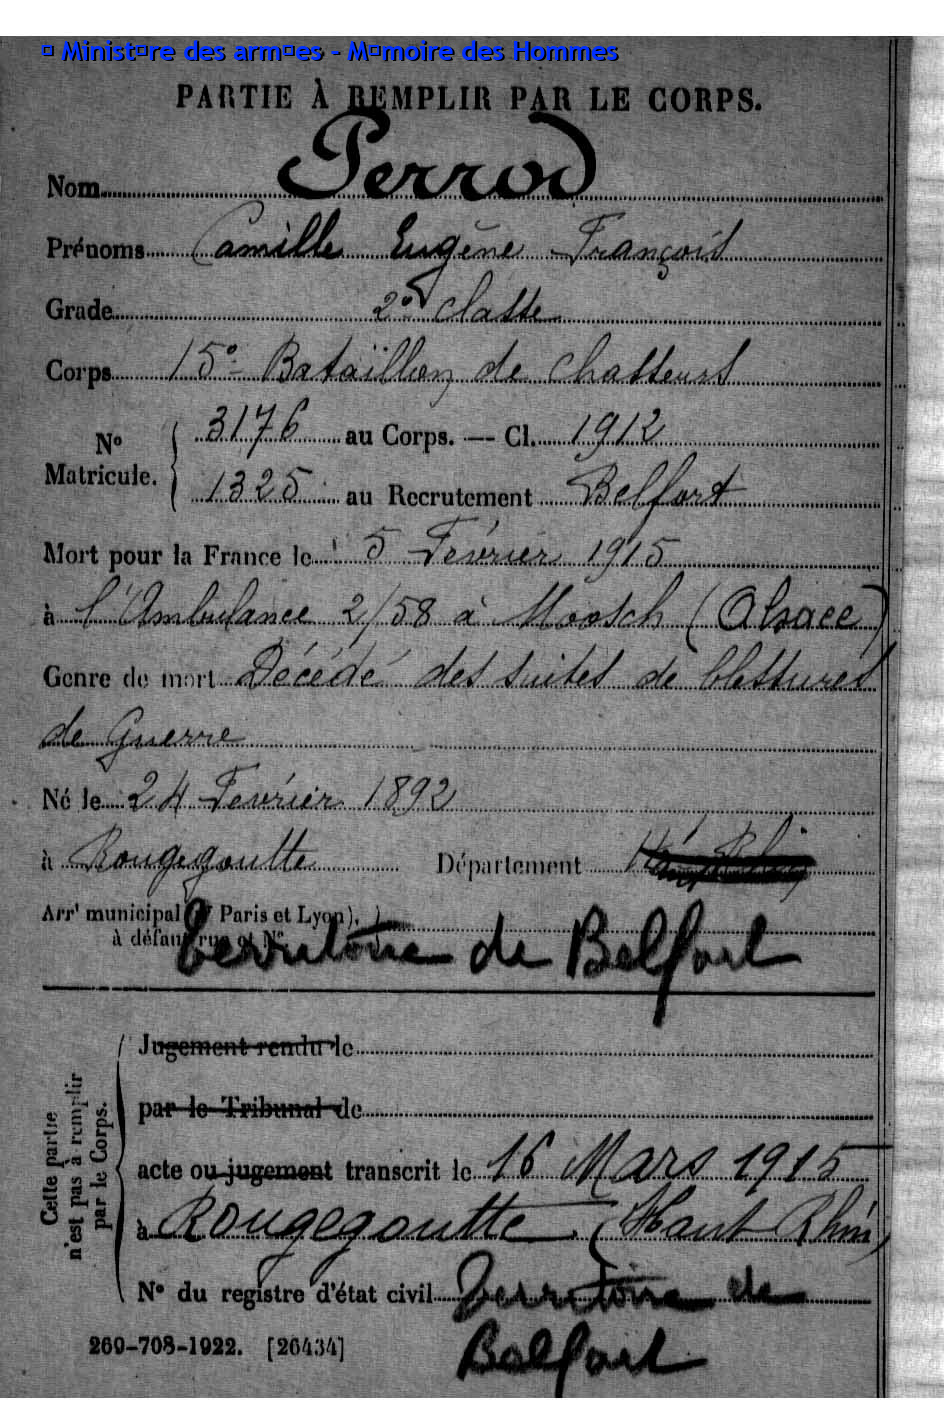 © Ministère des armées - Mémoire des Hommes
PARTIE À REMPLIR PAR LE CORPS.
Nom Perrod
Prénoms Camille Eugène François
Grade 2e classe
Corps 15e Bataillon de chasseurs
No Matricule. { 3176 au Corps. — Cl. 1912
1325 au Recrutement Belfort
Mort pour la France le 5 Février 1915
à l'Ambulance 2/58 à Moosch (Alsace)
Genre de mort Décédé des suites de blessures
de Guerre
Né le 24 Février 1892
à Rougegoutte Département
Arrt municipal (Pr Paris et Lyon),
à défaut rue et No
Territoire de Belfort
Cette partie n'est pas à remplir par le Corps.
Jugement rendu le
par le Tribunal de
acte ou jugement transcrit le 16 Mars 1915
à Rougegoutte (Haut Rhin)
No du registre d'état civil Territoire de
Belfort
260-708-1922. [26434]